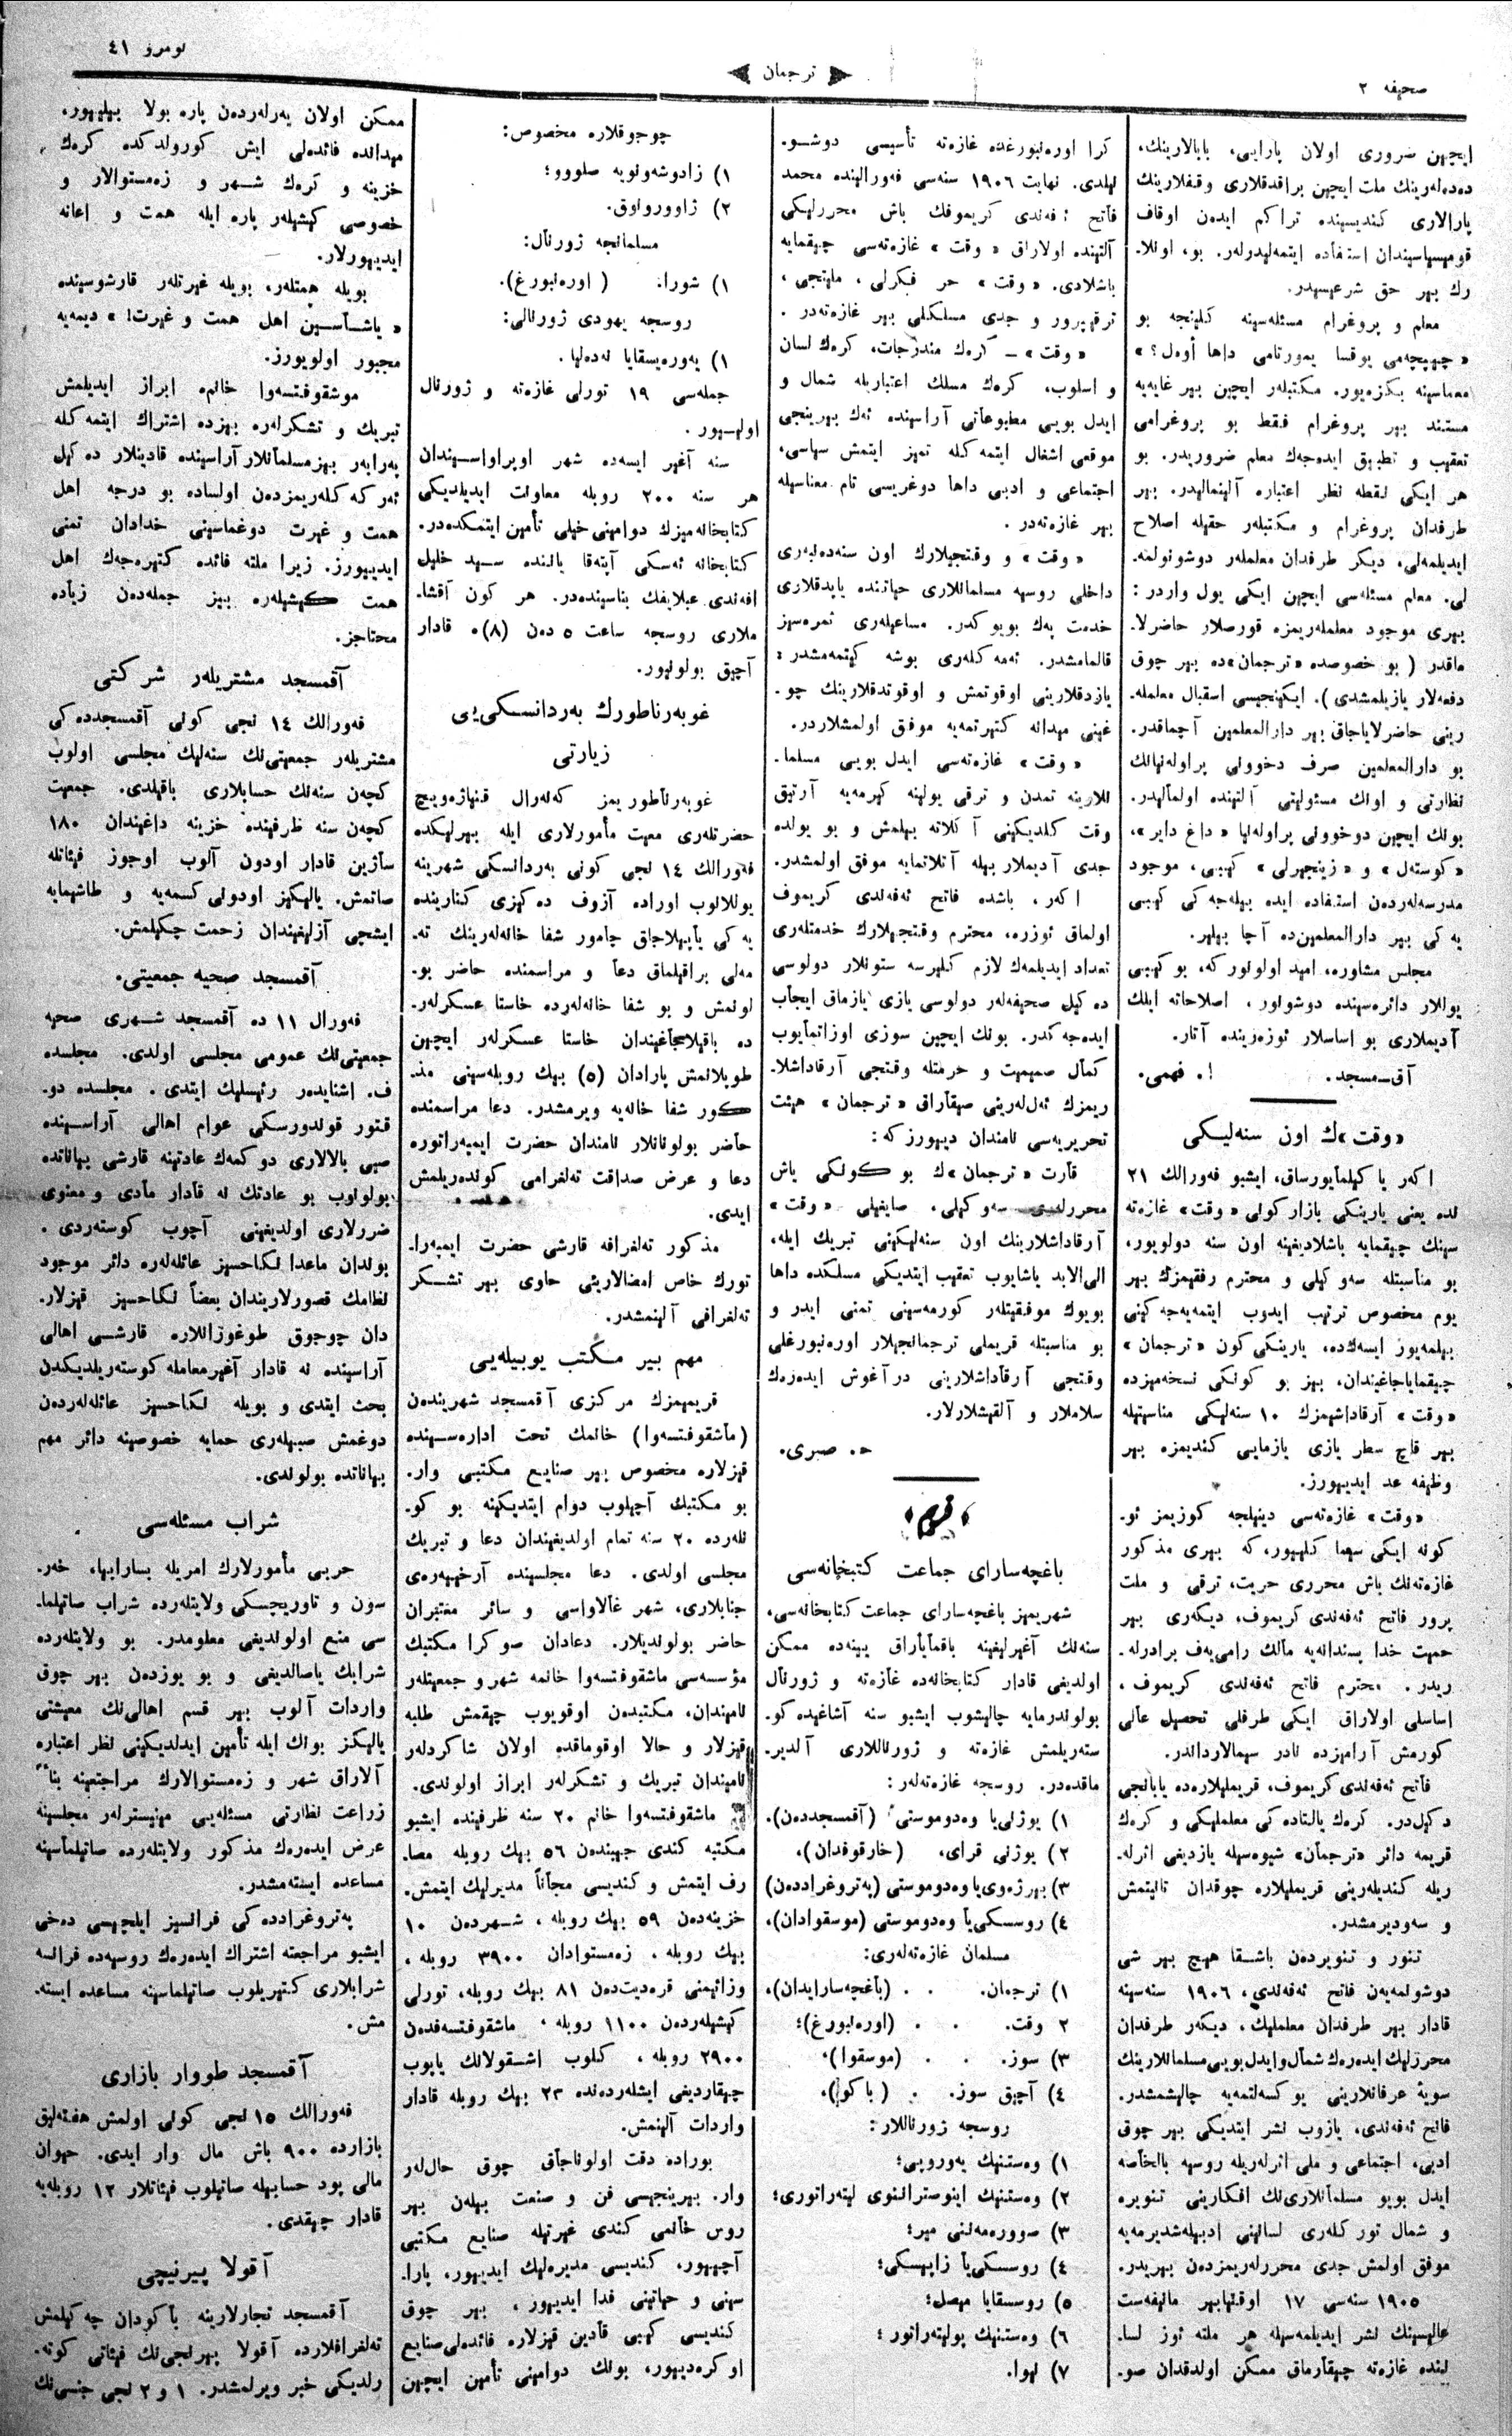 صحیفه ٢
ترجمان
نومرو ٤١
ایچین ضروری اولان پارایی، بابالارینڭ،
ده‌ده‌له‌رینڭ ملت ایچین براقدقلاری وقفلارینڭ
پارالاری کندیسینده تراکم ایده‌ن اوقاف
قومیسیاسیندان استفاده ایتمه‌لیدرلەر. بو، اونلا-
رڭ بیر حق شرعیسیدر.
معلم و پروغرام مسئله‌سینه کلینجه بو
« چیپچه‌می یوقسا یمورتامی داها أوەل؟ »
معماسینه بکزه‌یور. مکتبلەر ایچین بیر غایه‌یه
مستند بیر پروغرام فقط بو پروغرامی
تعقیب و تطبیق ایده‌جه‌ك معلم ضروریدر. بو
هر ایکی نقطه نظر اعتباره آلینمالیدر. بیر
طرفدان پروغرام و مکتبلەر حقیله اصلاح
ایدیلمه‌لی، دیکر طرفدان معلملەر دوشونولمه-
لی. معلم مسئله‌سی ایچین ایکی یول واردر :
بیری موجود معلملەریمزه قورصلار حاضرلا-
ماقدر ( بو خصوصده «ترجمان»ده بیر چوق
دفعه‌لار یازیلمشدی ). ایکینجیسی اسقبال معلمله-
رینی حاضرلایاجاق بیر دارالمعلمین آچماقدر.
بو دارالمعلمین صرف دخوونی پراوله‌نیانڭ
نظارتی و اونڭ مسئولیتی آلتینده اولمالیدر.
بونڭ ایچین دوخوونی پراوله‌نیا « داغ دایر »،
« کوسته‌ل » و « زینجیرلی » کیبی، موجود
مدرسه‌لەردەن استفاده ایده بیله‌جه‌کی کیبی
یه‌کی بیر دارالمعلمین‌ده آچا بیلیر.
مجلس مشاوره، امید اولونور که، بو کیبی
یوللار دائره‌سینده دوشونور، اصلاحاته ایلك
آدیملاری بو اساسلار ئوزەرینده آتار.
آق-مسجد. ا. فهمی.
«وقت»ڭ اون سنه‌لیکی
اکەر یاکیلمایورساق، ایشبو فه‌ورالڭ ٢١
نده یعنی یارینکی بازار کونی « وقت » غازه‌ته
سینڭ چیقمایه باشلادیغینه اون سنه دولویور،
بو مناسبتله سه‌وکیلی و محترم رفیقمزڭ بیر
یوم مخصوص ترتیب ایدوب ایتمه‌یه‌جه‌کینی
بیلمه‌یوز ایسه‌كده، یارینکی کون « ترجمان »
چیقمایاجاغیندان، بیز بو کونکی نسخه‌میزده
«وقت » آرقاداشیمزڭ ١٠ سنه‌لیکی مناسبتیله
بیر قاچ سطر یازی یازمایی کندیمزه بیر
وظیفه عد ایدییورز.
«وقت» غازه‌ته‌سی دینیلجه کوزیمز ئو-
کونه ایکی سیما کلییور، که بیری مذکور
غازه‌ته‌نڭ باش محرری حریت، ترقی و ملت
پرور فاتح ئه‌فه‌ندی کریموف، دیکه‌ری بیر
حمیت خدا پسندانه‌یه مالك رامی‌یه‌ف برادرلە-
ریدر. محترم فاتح ئه‌فه‌ندی کریموف،
اساسلی اولاراق ایکی طرفلی تحصیل عالی
کورمش آرامیزده نادر سیمالارداندر.
فاتح ئه‌فه‌ندی کریموف، قریملیلاره‌ده یابانجی
دکیل‌در. کرەك یالتاده‌کی معلملیکی و کرەك
قریمه دائر «ترجمان» شیوه‌سیله یازدیغی اثرلە-
ریله کندیله‌رینی قریملیلاره چوقدان تانیتمش
و سه‌ودیرمشدر.
تنور و تنویردەن باشقا هیچ بیر شی
دوشونمه‌یەن فاتح ئه‌فه‌ندی، ١٩٠٦ سنه‌سینه
قادار بیر طرفدان معلملیك، دیکەر طرفدان
محررلیك ایدەرەك شمال و ایدل بویی مسلمانلارینڭ
سویۀ عرفانلارینی یوکسه‌لتمه‌یه چالیشمشدر.
فاتح ئه‌فه‌ندی، یازوب نشر ایتدیکی بیر چوق
ادبی، اجتماعی و ملی اثرلەریله روسیه بالخاصه
ایدل بویو مسلمانلاری‌نڭ افکارینی تنویره
و شمال تورکله‌ری لسانینی ادبیله‌شدیرمه‌یه
موفق اولمش جدی محررلەریمزدەن بیریدر.
١٩٠٥ سنه‌سی ١٧ اوقتیابیر مانیفه‌ست
عالیسینڭ نشر ایدیلمه‌سیله هر ملته ئوز لسا-
نینده غازه‌ته چیقارماق ممکن اولدقدان صو-
کرا اوره‌نبورغده غازه‌ته تأسیسی دوشو-
نیلدی. نهایت ١٩٠٦ سنه‌سی فه‌ورالینده محمد
فاتح ئه‌فه‌ندی کریموفڭ باش محررلیکی
آلتینده اولاراق « وقت » غازه‌ته‌سی چیقمایه
باشلادی. « وقت » حر فکرلی، ملیتجی،
ترقیپرور و جدی مسلکلی بیر غازه‌ته‌در.
« وقت » — کرەك مندرجات، کرەك لسان
و اسلوب، کرەك مسلك اعتباریله شمال و
ایدل بویی مطبوعاتی آراسینده ئەڭ بیرینجی
موقعی اشغال ایتمه‌کله تمیز ایتمش سیاسی،
اجتماعی و ادبی داها دوغریسی تام معناسیله
بیر غازه‌ته‌در.
« وقت » و وقتجیلارڭ اون سنه‌ده‌نبەری
داخلی روسیه مسلمانلاری حیاتنده یاپدقلاری
خدمت پەك بویوکدر. مساعیله‌ری ثمره‌سیز
قالمامشدر. ئه‌مه‌کله‌ری بوشه کیتمه‌مشدر :
یازدقلارینی اوقوتمش و اوقوتدقلارینڭ چو-
غینی میدانه کتیرتمه‌یه موفق اولمشلاردر.
« وقت » غازه‌ته‌سی ایدل بویی مسلما-
نلارینه تمدن و ترقی یولینه کیرمه‌یه آرتیق
وقت کلدیکینی آڭلاته بیلمش و بو یولده
جدی آدیملار بیله آتلاتمایه موفق اولمشدر.
اکەر، باشده فاتح ئه‌فه‌ندی کریموف
اولماق ئوزره، محترم وقتجیلارڭ خدمتله‌ری
تعداد ایدیلمەك لازم کلیرسه ستونلار دولوسی
ده‌کیل صحیفه‌لەر دولوسی یازی یازماق ایجاب
ایده‌جه‌کدر. بونڭ ایچین سوزی اوزاتمایوب
کمال صمیمیت و حرمتله وقتجی آرقاداشلا-
ریمزڭ ئه‌لله‌رینی صیقاراق « ترجمان » هیئت
تحریریه‌سی نامندان دییورز که :
قارت « ترجمان »ڭ بو کونکی یاش
محررلەری سه‌وکیلی، صایغیلی « وقت »
آرقاداشلارینڭ اون سنه‌لیکینی تبریك ایله،
الی‌الابد یاشایوب تعقیب ایتدیکی مسلکده داها
بویوك موفقیتلەر کورمه‌سینی تمنی ایدر و
بو مناسبتله قریملی ترجمانجیلار اوره‌نبورغلی
وقتجی آرقاداشلارینی در آغوش ایدەرەك
سلاملار و آلقیشلارلار.
ح. صبری.
« قریم »
باغچه‌سارای جماعت کتبخانه‌سی
شهریمز باغچه‌سارای جماعت کتابخانه‌سی،
سنه‌نڭ آغیرلیغینه باقمایاراق یینه‌ده ممکن
اولدیغی قادار کتابخانه‌ده غازه‌ته و ژورنال
بولوندرمایه چالیشوب ایشبو سنه آشاغیده کو-
سته‌ریلمش غازه‌ته و ژورناللاری آلدیر-
ماقده‌در. روسجه غازه‌ته‌لەر :
١) یوژنی‌یا وه‌دوموستی (آقمسجددەن).
٢) یوژنی قرای، (خارقوفدان)،
٣) بیرژه‌وی‌یا وه‌دوموستی (په‌تروغراددەن)
٤) روسسکی‌یا وه‌دوموستی (موسقوادان)،
مسلمان غازه‌ته‌لەری:
١) ترجمان. . . (باغچه‌سارایدان)،
٢ وقت. . . (اوره‌نبورغ)؛
٣) سوز. . . (موسقوا)،
٤) آچیق سوز. . (باکو)،
روسجه ژورناللار :
١) وه‌ستنیك یه‌وروپی؛
٢) وه‌ستنیك اینوسترانّنوی لیته‌راتوری؛
٣) صووره‌مه‌ننی میر؛
٤) روسسکی‌یا زاپیسکی؛
٥) روسسقایا میصل؛
٦) وه‌ستنیك
٧) نیوا.
چوجوقلاره مخصوص:
١) زادوشه‌ونویه صلووو؛
٢)
مسلمانجه ژورنال:
١) شورا. (اوره‌نبورغ).
روسجه یهودی ژورنالی:
١) یه‌وره‌یسقایا نه‌ده‌لیا.
جمله‌سی ١٩ تورلی غازه‌ته و ژورنال
اولییور.
سنه آغیر ایسه‌ده شهر اوپراواسیندان
هر سنه ٢٠٠ روبله معاونت ایدیلدیکی
کتابخانه‌میزڭ دوامینی خیلی تأمین ایتمکده‌در.
کتابخانه ئه‌سکی آپته‌قا یاننده سید خلیل
افه‌ندی عبلایفڭ بناسینده‌در. هر کون آقشا-
ملاری روسجه ساعت ٥ دەن (٨)ه قادار
آچیق بولونیور.
غوبه‌رناطورڭ به‌ردانسکی‌یی
زیارتی
غوبه‌رناطوریمز که‌نه‌رال قنیاژه‌ویچ
حضرتله‌ری معیت مأمورلاری ایله بیرلیکده
فه‌ورالڭ ١٤ نجی کونی به‌ردانسکی شهرینه
یوللانوب اوراده آزوف ده‌کیزی کنارینده
یه‌کی یاپیلاجاق چامور شفا خانه‌له‌رینڭ ته-
مه‌لی براقیلماق دعا و مراسمنده حاضر بو-
لونمش و بو شفا خانه‌لەرده خاستا عسکرلەر-
ده باقیلاجاغیندان خاستا عسکرلەر ایچین
طوپلانمش پارادان (٥) بیڭ روبله‌سینی مذ-
کور شفا خانه‌یه ویرمشدر. دعا مراسمنده
حاضر بولونانلار نامندان حضرت ایمپه‌راتوره
دعا و عرض صداقت ته‌لغرامی کونده‌ریلمش
ایدی.
مذکور ته‌لغرافه قارشی حضرت ایمپه‌را-
تورڭ خاص امضالارینی حاوی بیر تشکر
ته‌لغرافی آلینمشدر.
مهم بیر مکتب یوبیله‌یی
قریمیمزڭ مرکزی آقمسجد شهریندەن
(ماشقوفتسه‌وا) خانمڭ تحت اداره‌سینده
قیزلاره مخصوص بیر صنایع مکتبی وار.
بو مکتبڭ آچیلوب دوام ایتدیکینه بو کو-
نلەرده ٢٠ سنه تمام اولدیغیندان دعا و تبریك
مجلسی اولدی. دعا مجلسینده آرخییه‌ره‌ی
جنابلاری، شهر غالاواسی و سائر معتبران
حاضر بولوندیلار. دعادان صوکرا مکتبڭ
مؤسسه‌سی ماشقوفتسه‌وا خانمه شهر و جمعیتلەر
نامیندان، مکتبدەن اوقویوب چیقمش طلبه
قیزلار و حالا اوقوماقده اولان شاکردلەر
نامیندان تبریك و تشکرلەر ابراز اولوندی.
ماشقوفتسه‌وا خانم ٢٠ سنه ظرفینده ایشبو
مکتبه کندی جیبندەن ٥٦ بیڭ روبله مصا-
رف ایتمش و کندیسی مجاناً مدیرلیك ایتمش.
خزینه‌دەن ٥٩ بیڭ روبله، شهردەن ١٠
بیڭ روبله، زه‌مستوادان ٣٩٠٠ روبله،
وزائیمنی قره‌دیت‌دەن ٨١ بیڭ روبله، تورلی
کیشیلەردەن ١١٠٠ روبله، ماشقوفتسه‌فدەن
٢٩٠٠ روبله، کلوب اشقولانڭ یاپوب
چیقاردیغی ایشلەردەنده ٢٣ بیڭ روبله قادار
واردات آلینمش.
بوراده دقت اولوناجاق چوق حال‌لەر
وار. بیرینجیسی فن و صنعت بیلەن بیر
روس خانمی کندی غیرتیله صنایع مکتبی
آچییور، کندیسی مدیره‌لیك ایدییور، پارا-
سینی و حیاتینی فدا ایدییور، بیر چوق
کندیسی کیبی قادین قیزلاره فائده‌لی صنایع
اوکره‌دییور، بونڭ دوامینی تأمین ایچین
ممکن اولان یەرلەردەن پاره بولا بیلییور،
میدانده فائده‌لی ایش کورولدکده کرەك
خزینه و کرەك شهر و زه‌مستوالار و
خصوصی کیشیلەر پاره ایله همت و اعانه
ایدییورلار.
بویله همتلەر، بویله غیرتلەر قارشوسینده
« یاشاسین اهل همت و غیرت! » دیمه‌یه
مجبور اولویورز.
موشقوفتسه‌وا خانمه ابراز ایدیلمش
تبریك و تشکرلەره بیزده اشتراك ایتمه‌کله
به‌رابه‌ر بیز مسلمانلار آراسینده قادینلار ده‌کیل
ئه‌رکه‌کله‌ریمزدەن اولساده بو درجه اهل
همت و غیرت دوغماسینی خدادان تمنی
ایدییورز. زیرا ملته فائده کتیره‌جەك اهل
همت کیشیلەره بیز جمله‌دەن زیاده
محتاجز.
آقمسجد مشتریلەر شرکتی
فه‌ورالڭ ١٤ نجی کونی آقمسجدده‌کی
مشتریلەر جمعیتی‌نڭ سنه‌لیك مجلسی اولوب
کچەن سنه‌نڭ حسابلاری باقیلدی. جمعیت
کچەن سنه ظرفینده خزینه داغیندان ١٨٠
ساژین قادار اودون آلوب اوجوز فیئاتله
صاتمش. یالیکیز اودونی کسمه‌یه و طاشیمایه
ایشچی آزلیغیندان زحمت چکیلمش.
آقمسجد صحیه جمعیتی.
فه‌ورال ١١ ده آقمسجد شهری صحیه
جمعیتی‌نڭ عمومی مجلسی اولدی. مجلسده
ف. اشنایدەر رئیسلیك ایتدی. مجلسده دو-
قتور قولدورسکی عوام اهالی آراسینده
صبی بالالاری دوکمەك عادتینه قارشی بیاناتده
بولونوب بو عادتڭ نه قادار مادی و معنوی
ضررلاری اولدیغینی آچوب کوسته‌ردی.
بوندان ماعدا نکاحسیز عائله‌لەره دائر موجود
نظامڭ قصورلاریندان بعضاً نکاحسیز قیزلار-
دان چوجوق طوغوزانلاره قارشی اهالی
آراسینده نه قادار آغیر معامله کوسته‌ریلدیکدن
بحث ایتدی و بویله نکاحسیز عائله‌لەردەن
دوغمش صبیلەری حمایه خصوصینه دائر مهم
بیاناتده بولوندی.
شراب مسئله‌سی
حربی مأمورلارڭ امریله بسارابیا، خەر-
سون و تاوریچسکی ولایتلەرده شراب صاتیلما-
سی منع اولوندیغی معلومدر. بو ولایتلەرده
شرابڭ یاصالدیغی و بو یوزدەن بیر چوق
واردات آلوب بیر قسم اهالی‌نڭ معیشتی
یالیکز بونڭ ایله تأمین ایدلدیکینی نظر اعتباره
آلاراق شهر و زه‌مستوالارڭ مراجعتینه بناً
زراعت نظارتی مسئله‌یی مینیسترلەر مجلسینه
عرض ایدەرەك مذکور ولایتلەرده صاتیلماسینه
مساعده ایسته‌مشدر.
په‌تروغرادده‌کی فرانسیز ایلچیسی دەخی
ایشبو مراجعته اشتراك ایدەرەك روسیه‌ده فرانسه
شرابلاری کتیریلوب صاتیلماسینه مساعده ایسته-
مش.
آقمسجد طووار بازاری
فه‌ورالڭ ١٥ نجی کونی اولمش هفته‌لیق
بازارده ٩٠٠ باش مال وار ایدی. حیوان
مالی پود حسابیله صاتیلوب فیئاتلار ١٢ روبله‌یه
قادار چیقدی.
آقولا پیرنیچی
آقمسجد تجارلارینه باکودان چه‌کیلمش
ته‌لغرافلارده آقولا بیرنجی‌نڭ فیئاتی کوته-
رلدیکی خبر ویرلمشدر. ١ و ٢ نجی جنسی‌نڭ